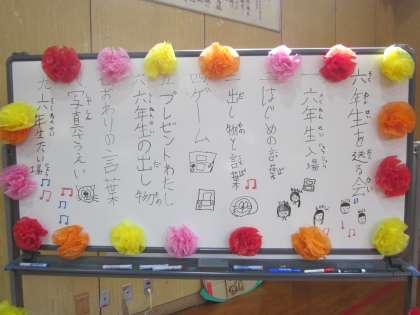 六年生を送る会
一六年生入場
二はじめの言葉
三出し物と言葉
四ゲーム
五プレゼントわたし
六六年生の出し物
七おわりの言葉
八写真さつえい
九六年生たい場